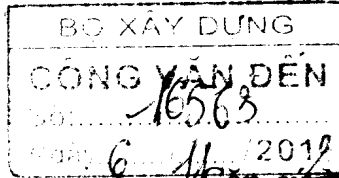 BỘ XÂY DỰNG
CÔNG VĂN ĐẾN
Số: 16563
6 /201